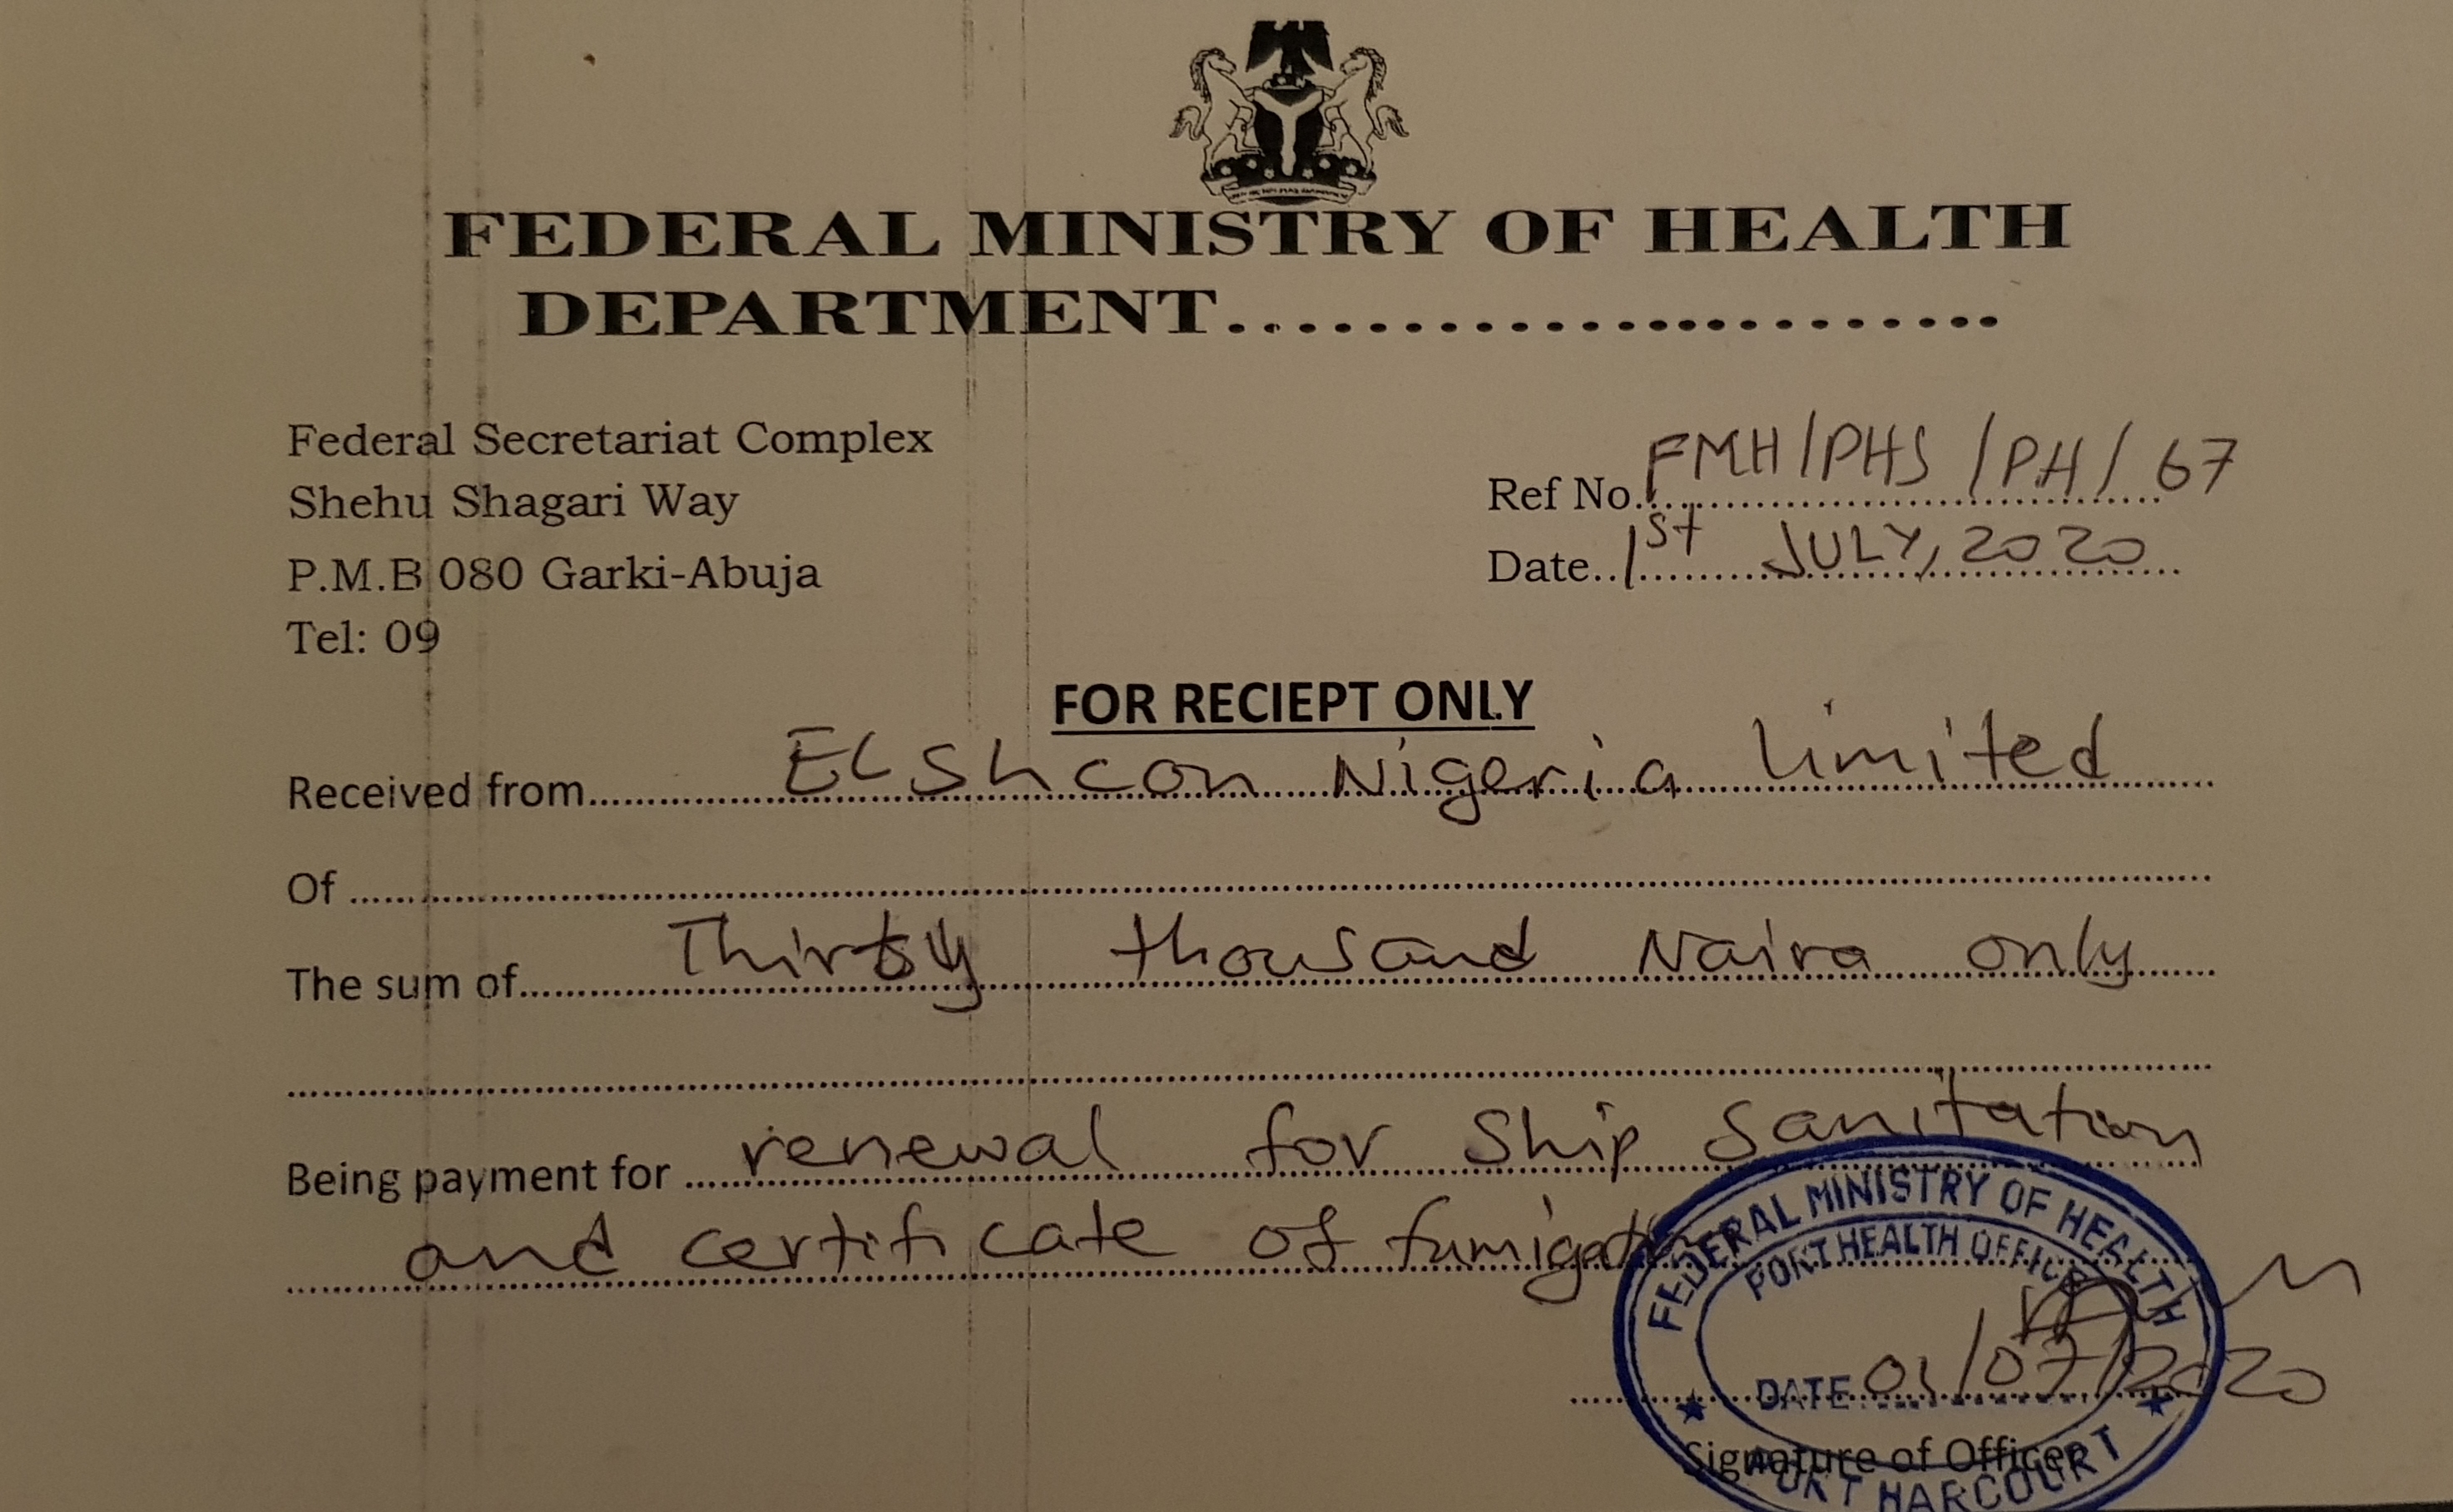 FEDERAL MINISTRY OF HEALTH
DEPARTMENT..............................
Federal Secretariat Complex
Shehu Shagari Way
P.M.B 080 Garki-Abuja
Tel: 09
Ref No. FMH/PHS/PH/67
Date..1st JULY, 2020
FOR RECIEPT ONLY
Received from Elshcon Nigeria limited
Of
The sum of Thirty thousand Naira only
Being payment for renewal for Ship Sanitation
and certificate of fumigation
FEDERAL MINISTRY OF HEALTH
PORT HEALTH OFFICE
DATE 01/07/2020
Signature of Officer
PORT HARCOURT